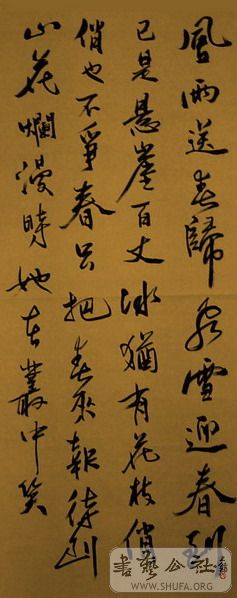 風雨送春歸飛雪迎春到
已是懸崖百丈冰猶有花枝俏
俏也不爭春只把春來報待到
山花爛漫時她在叢中笑
書藝公社
WWW.SHUFA.ORG